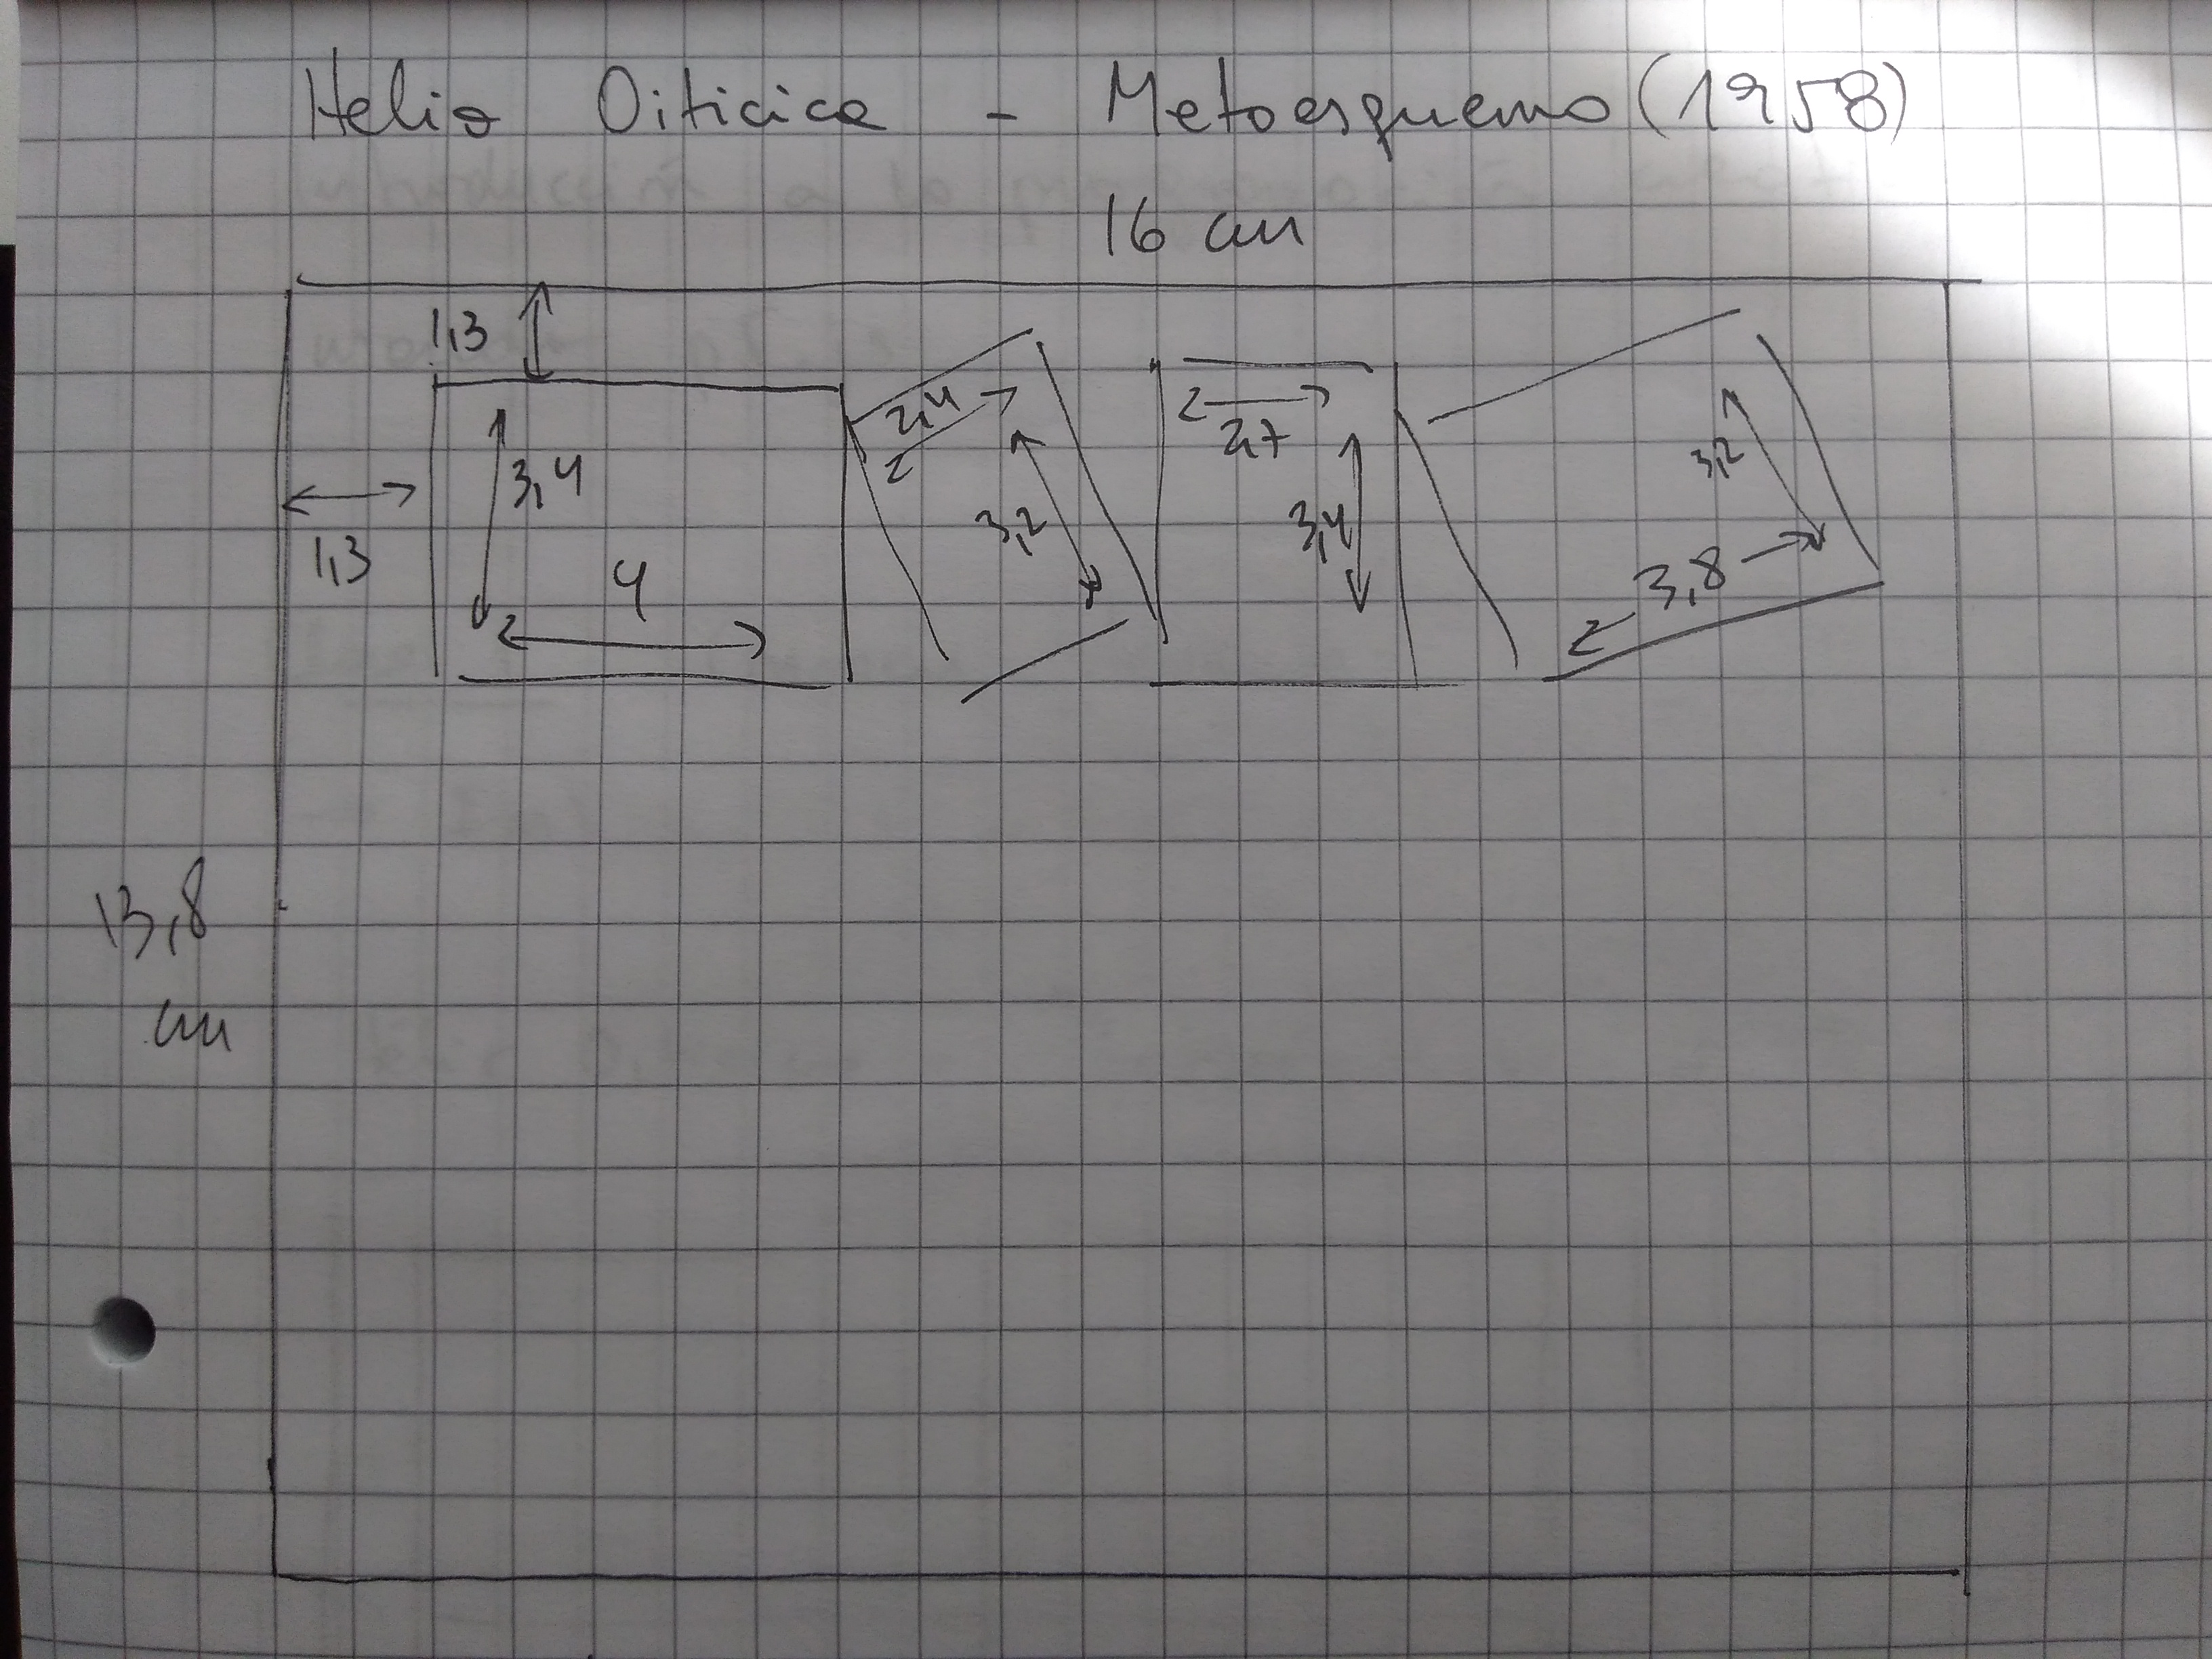 Helio Oiticica - Metaesquema (1958)
16 cm
1,3
2,4
2,7
3,4
3,2
3,2
3,4
1,3
4
3,8
13,8
cm